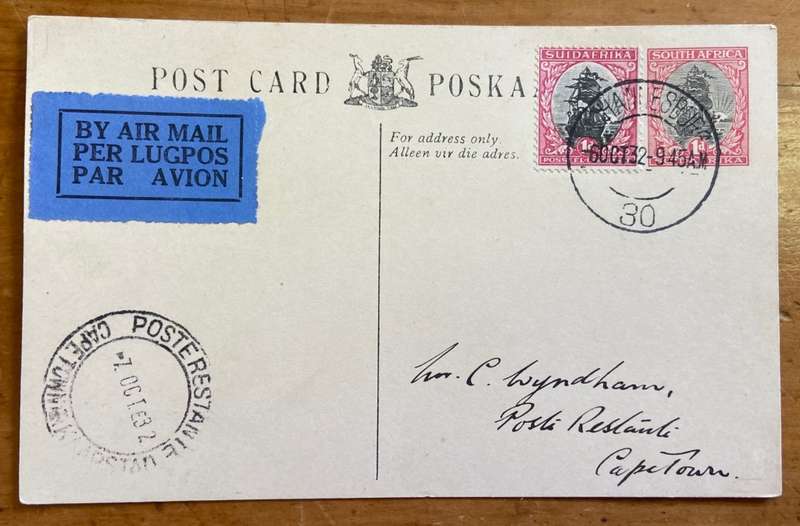 POST CARD POSKA
SUIDAFRIKA
SOUTH AFRICA
BY AIR MAIL
PER LUGPOS
PAR AVION
For address only
Alleen vir die adres.
1d
1d
JOHANNESBURG
6 OCT 32-9 45 AM
30
POSTE RESTANTE
CAPE TOWN
-7. OCT. 32
C. Wyndham,
Poste Restante
Cape Town.